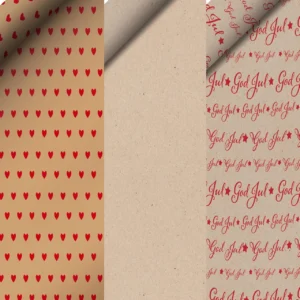 God Jul ★ God Jul
God Jul ★ God Jul
God Jul ★ God Jul
God Jul ★ God Jul
God Jul ★ God Jul ★
God Jul ★ God Jul
★ God Jul ★ God Jul
God Jul ★ God Jul ★
God Jul ★ God Jul
God Jul ★ God Jul
God Jul ★ God Jul